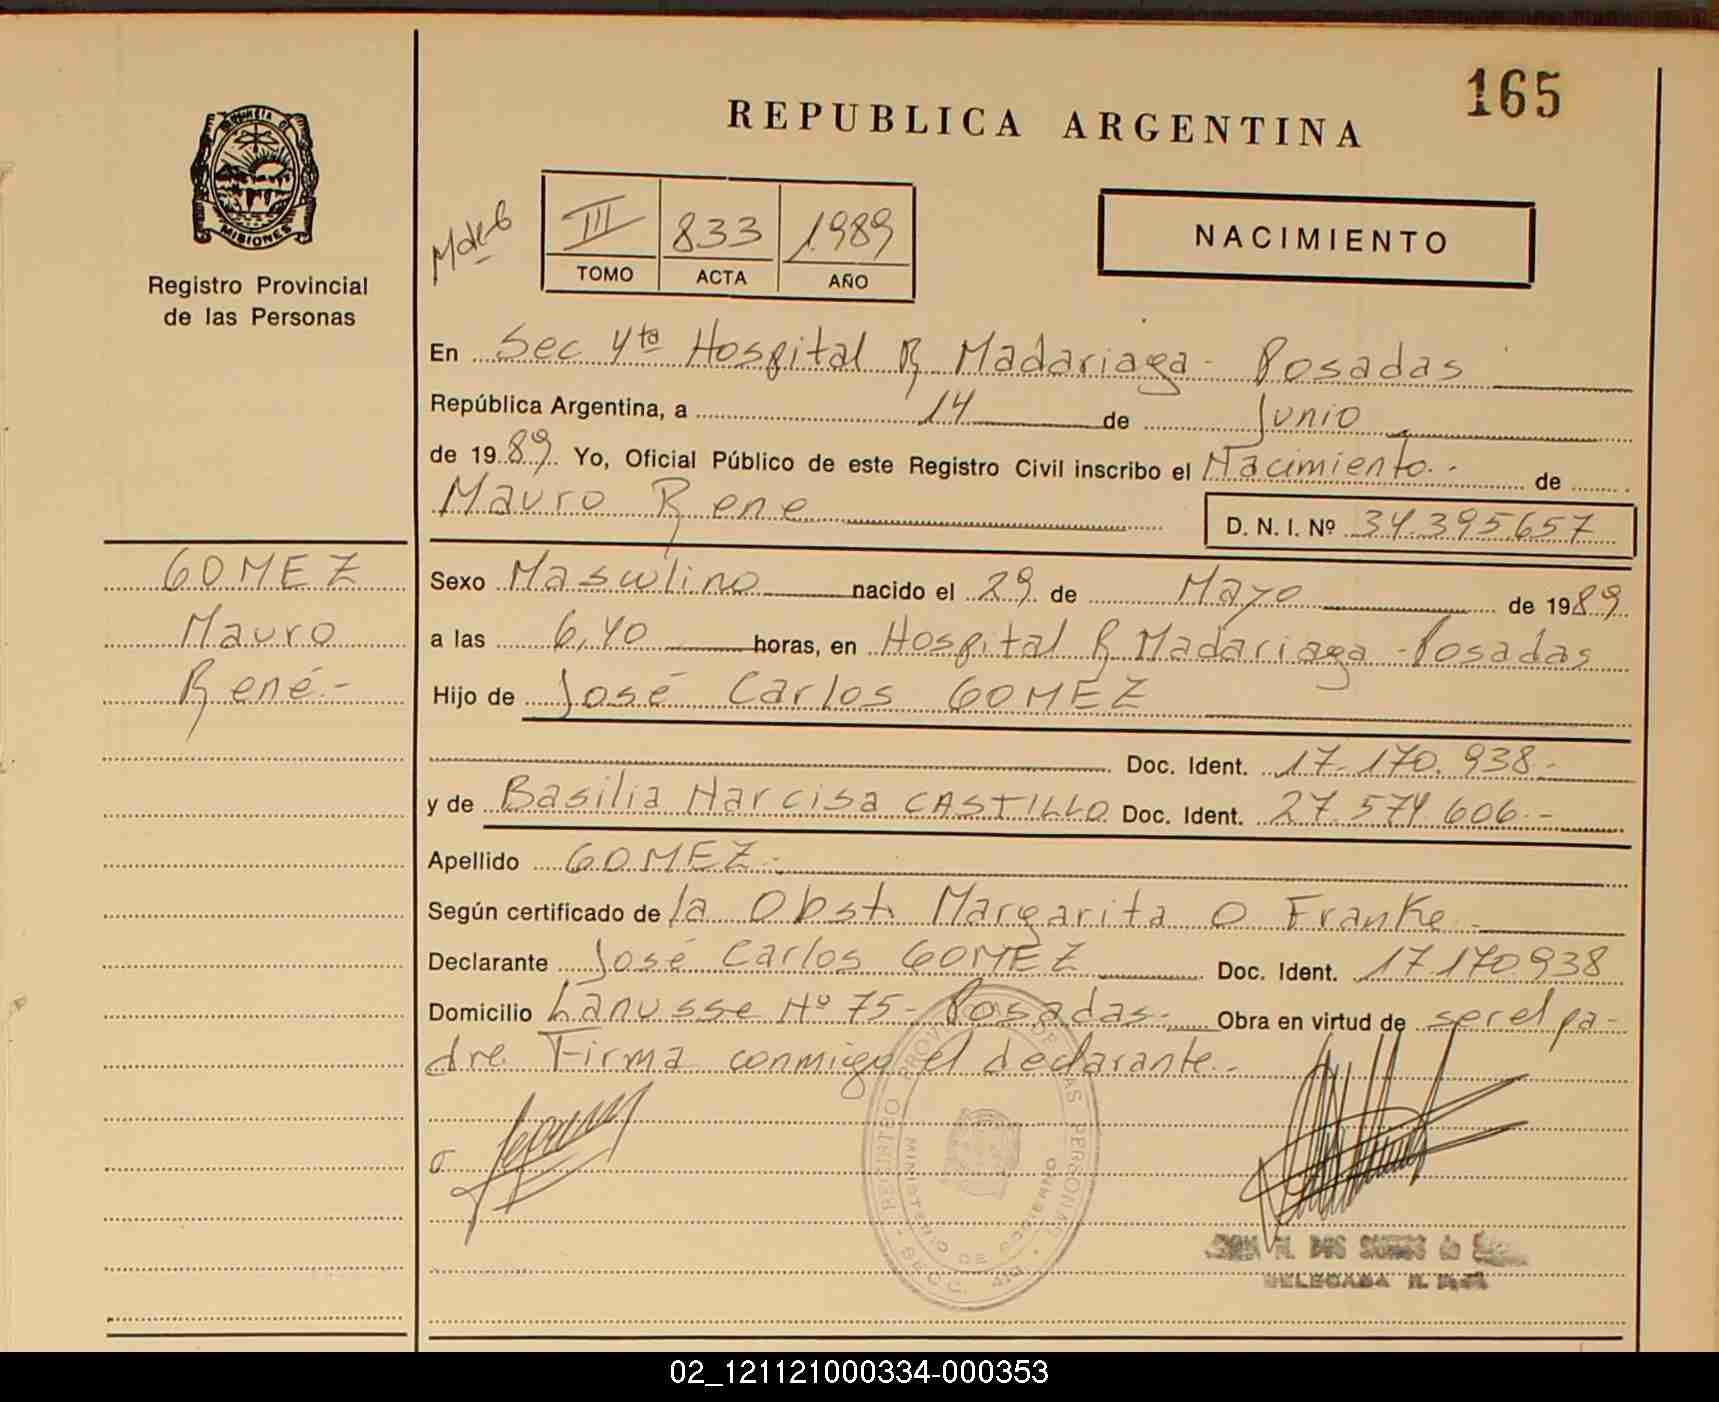 165
REPUBLICA ARGENTINA
PROVINCIA DE
MISIONES
Registro Provincial
de las Personas
III 833 1989
TOMO ACTA AÑO
NACIMIENTO
En Sec 4ta Hospital R Madariaga - Posadas
República Argentina, a 14 de Junio
de 1989 Yo, Oficial Público de este Registro Civil inscribo el Nacimiento.- de
Mauro Rene D. N. I. Nº 34.395.657
GOMEZ
Mauro
René.-
Sexo Masculino nacido el 29 de Mayo de 1989
a las 6,40 horas, en Hospital R Madariaga - Posadas
Hijo de José Carlos GOMEZ
Doc. Ident. 17.170.938.-
y de Basilia Narcisa CASTILLO Doc. Ident. 27.574.606.-
Apellido GOMEZ.-
Según certificado de la Obst. Margarita O Franke.-
Declarante José Carlos GOMEZ Doc. Ident. 17.170.938
Domicilio Lanusse Nº 75- Posadas.- Obra en virtud de ser el pa-
dre. Firma conmigo el declarante.-
REGISTRO PROV. DE LAS PERSONAS
MINISTERIO DE GOBIERNO
SECC. 4ta
DOS SANTOS de
DELEGADA
02_121121000334-000353